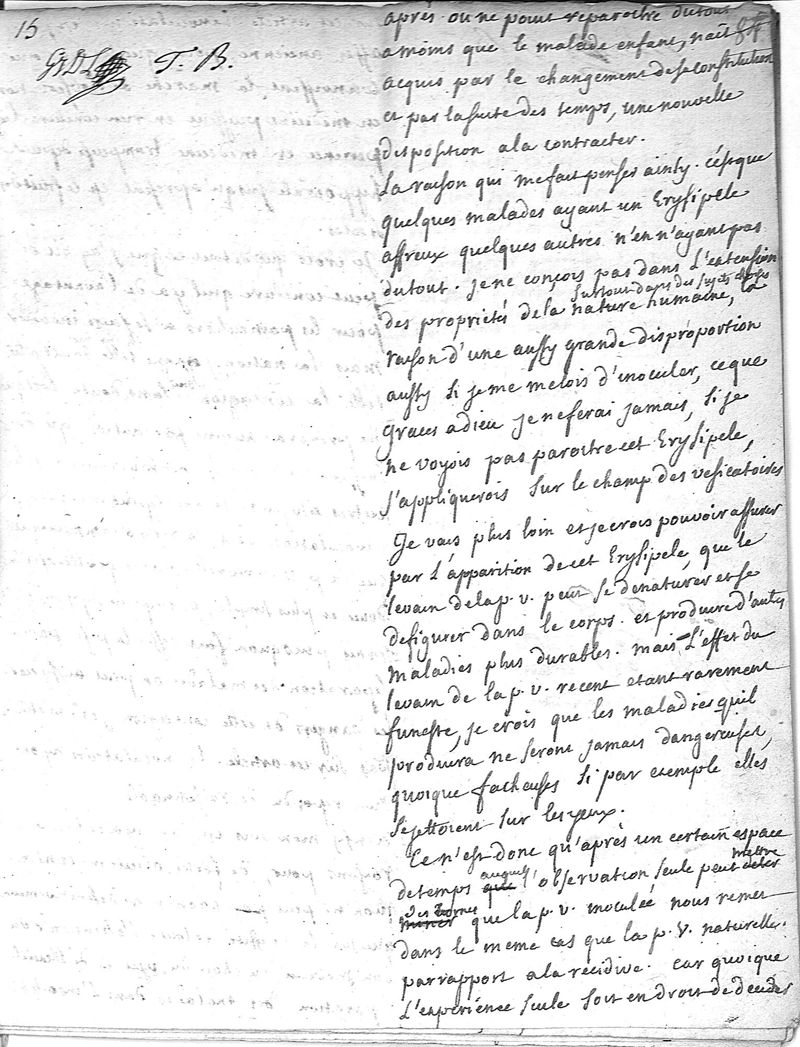 15
T. B.
84
après ou ne point reparoitre du tout
amoins que le malade enfant, n'ait
acquis par le changement de sa constitution
et par la suite des temps, une nouvelle
disposition a la contracter.
La raison qui me fait penser ainsy. c'est que
quelques malades ayant un Erysipele
affreux quelques autres n'en n'ayant pas
du tout. je ne conçois pas dans L'extension
surtout dans des sujets
des propriétés de la nature humaine, la
raison d'une aussy grande disproportion
aussy si je me melois d'inoculer, ce que
graces a dieu je ne ferai jamais, si je
ne voyois pas paroitre cet Erysipele,
j'appliquerois sur le champ des vesicatoires
Je vais plus loin et je crois pouvoir assurer
par L'apparition de cet Erysipele, que le
levain de la p. v. peut se denaturer et se
defigurer dans le corps. et produire d'autres
maladies plus durables. mais L'effet du
levain de la p. v. recent etant rarement
funeste, je crois que les maladies quil
produira ne seront jamais dangereuses,
quoique facheuses si par exemple elles
se jettoient sur les yeux.
Ce n'est donc qu'après un certain espace
mettre
de temps auquel l'observation seule peut
des bornes
que la p. v. inoculeé nous remet
dans le meme cas que la p. v. naturelle.
par rapport a la recidive. car quoique
L'experience seule soit en droit de decider